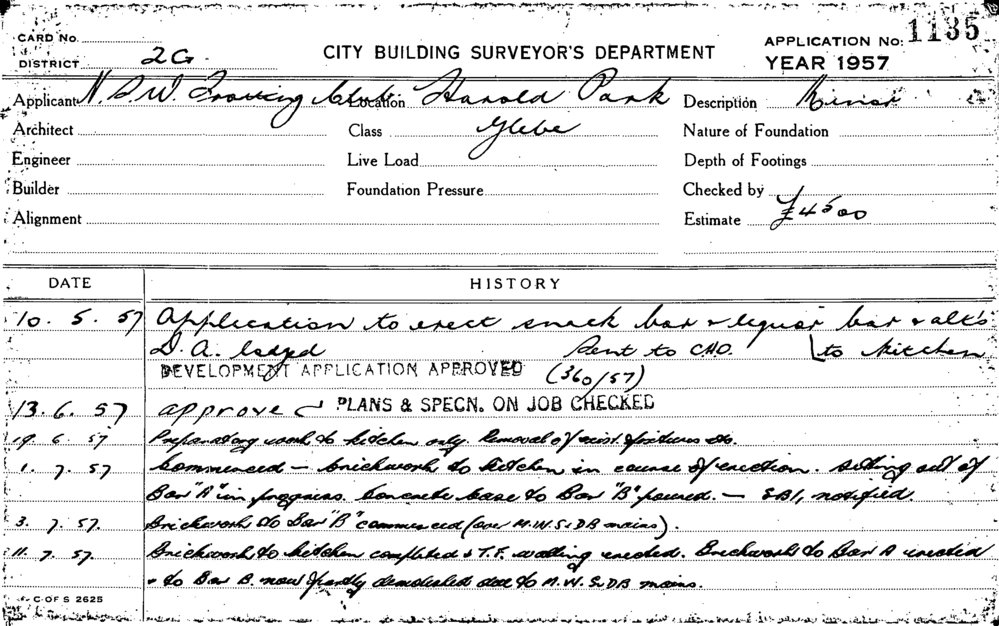 CARD No.
DISTRICT 2G.
CITY BUILDING SURVEYOR'S DEPARTMENT
APPLICATION No: 1135
YEAR 1957
Applicant N.S.W. Trotting Club Location Harold Park Description Minor
Architect Class Glebe Nature of Foundation
Engineer Live Load Depth of Footings
Builder Foundation Pressure Checked by
Alignment Estimate £4500
DATE HISTORY
10. 5. 57 Application to erect snack bar & liquor bar & alt's
D.A. lodged Sent to CHO. to kitchen
DEVELOPMENT APPLICATION APPROVED (360/57)
13. 6. 57 approve PLANS & SPECN. ON JOB CHECKED
19. 6. 57 Preparatory work to kitchen only. Removal of exist. fixtures etc.
1. 7. 57 Commenced – brickwork to kitchen in course of erection. Setting out of
Bar "A" in progress. Concrete base to Bar "B" poured. – SBI, notified.
3. 7. 57. Brickwork to Bar "B" commenced (over M.W.S.&DB mains).
11. 7. 57. Brickwork to kitchen completed & T.F. walling erected. Brickwork to Bar A erected
& to Bar B. now partly demolished due to M.W.S.&DB mains.
C OF S 2625